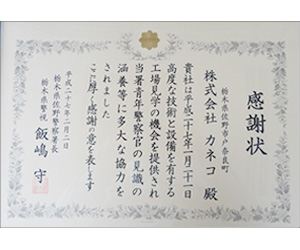 感謝状
栃木県佐野市戸奈良町
株式会社 カネコ 殿
貴社は平成二十七年一月二十一日
高度な技術と設備を有する
工場見学の機会を提供され
当署青年警察官の見識の
涵養等に多大な協力を
されました
ここに厚く感謝の意を表します
平成二十七年二月二日
栃木県佐野警察署長
栃木県警視 飯嶋 守